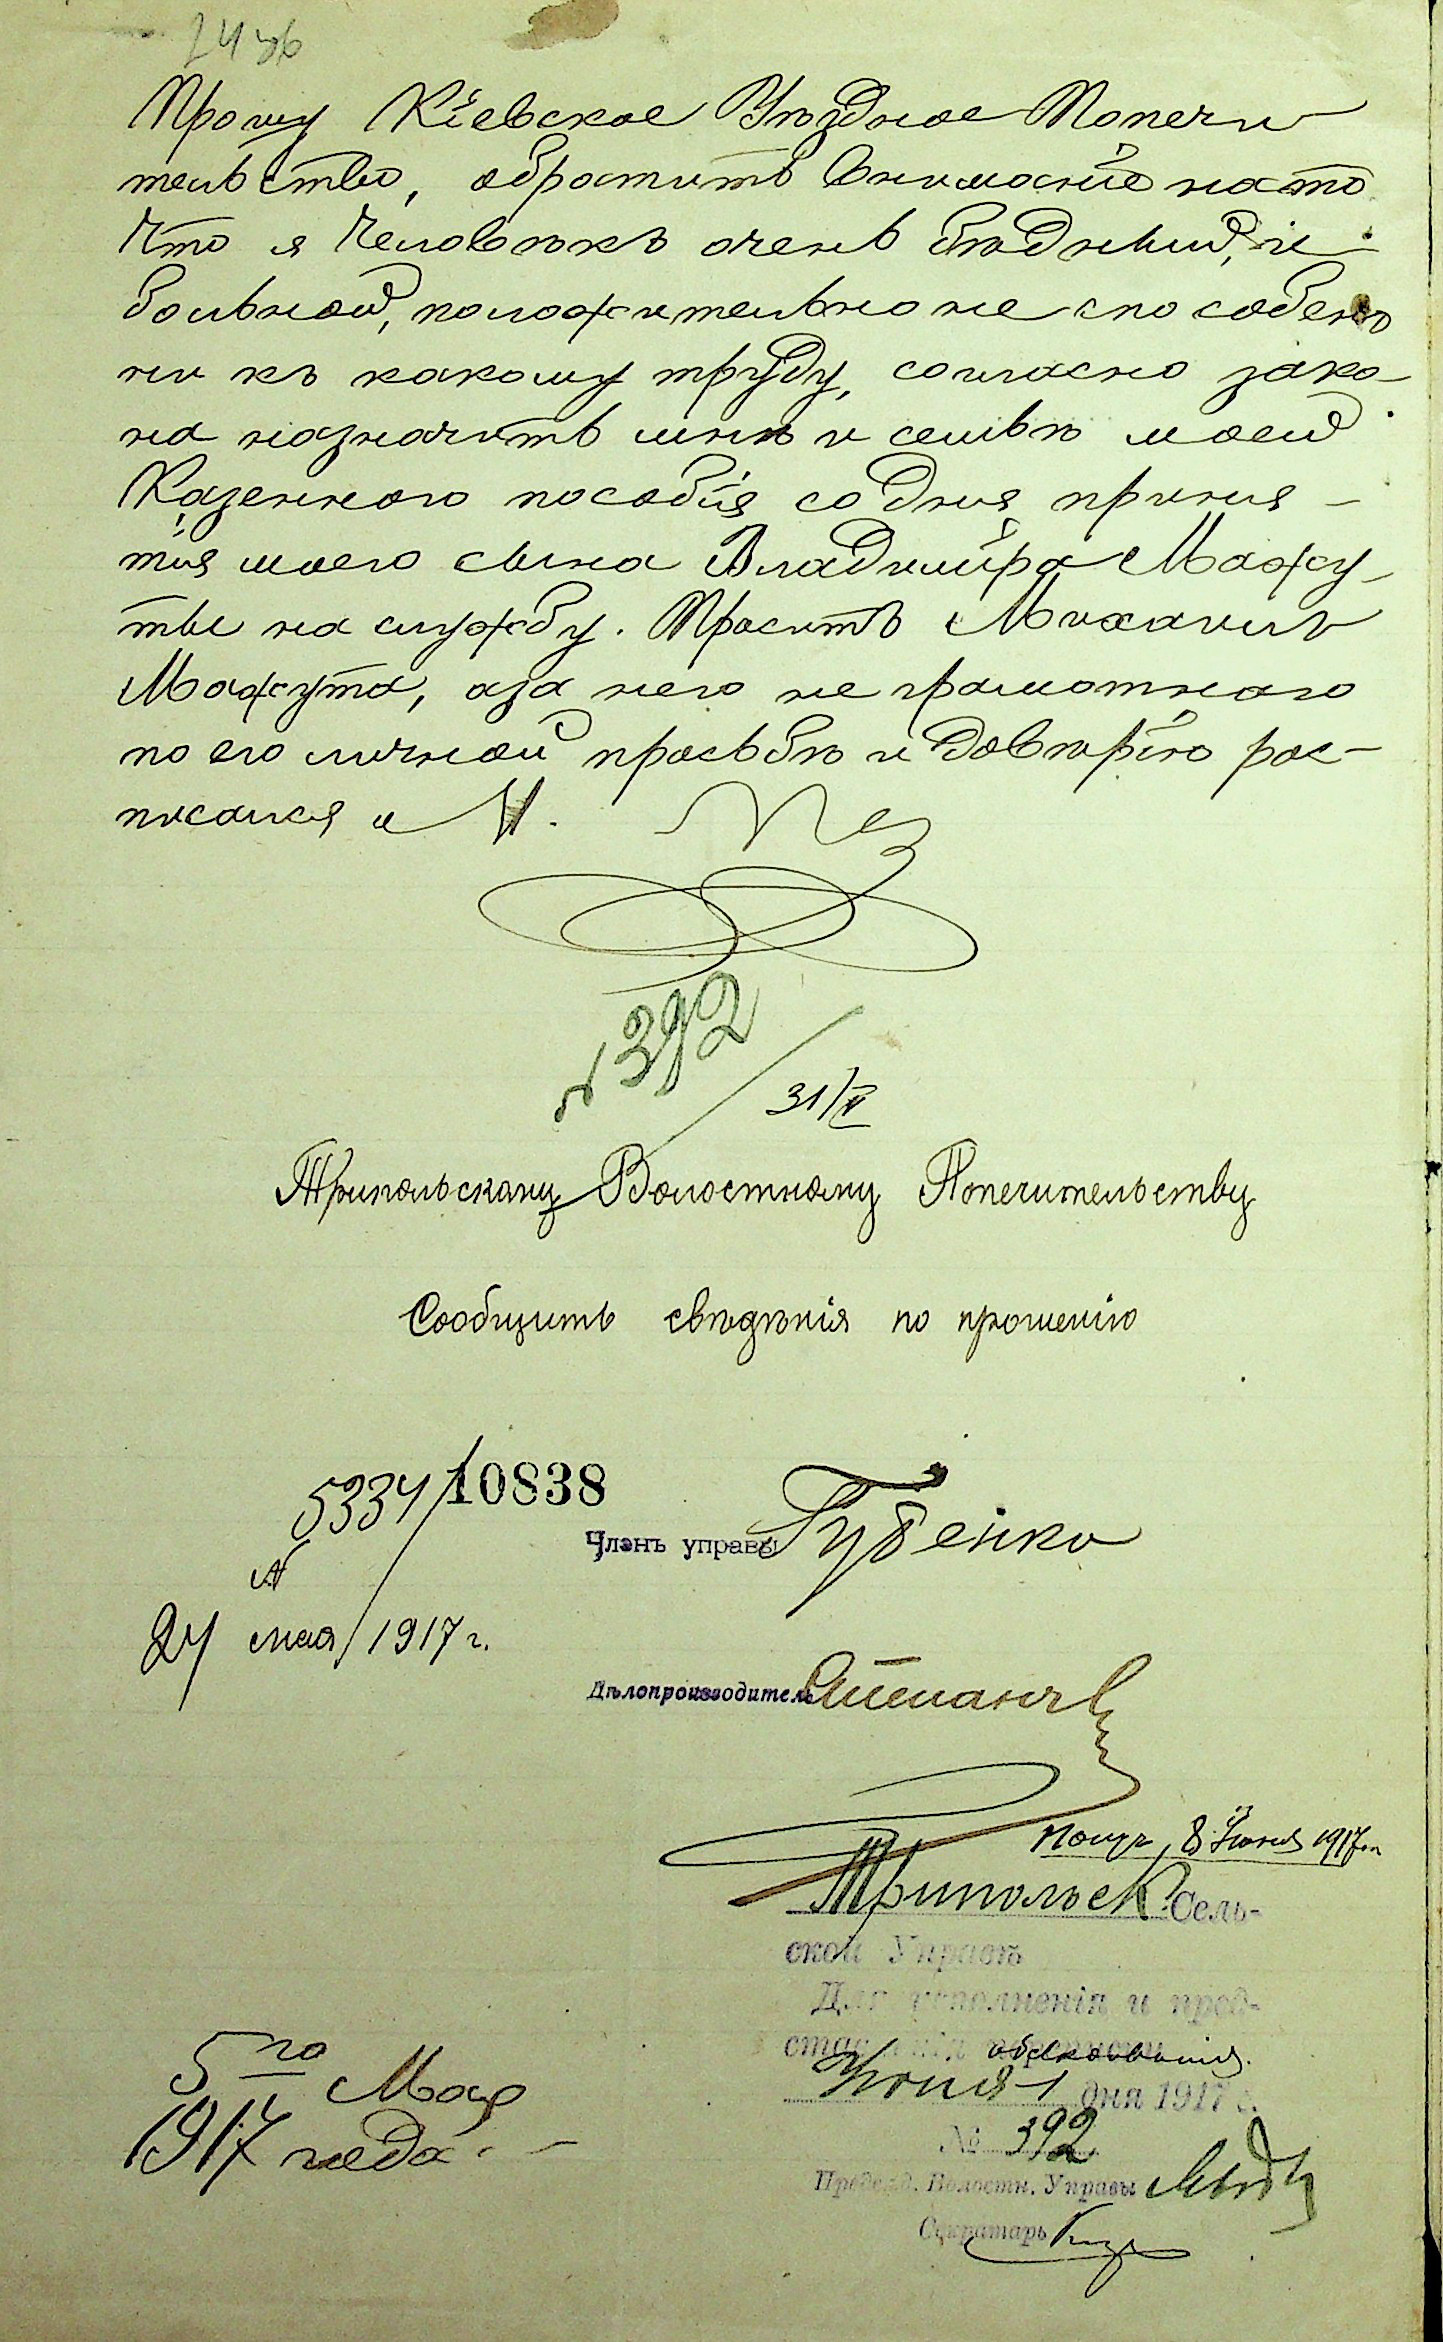 Прошу Кіевское Уѣздное Попечи
тельство, обротить вниманіе на то
что я человѣкъ очень бѣдный, и
больной, положительно не способенъ
ни къ какому труду, согласно зако-
на назначить мнѣ и семьѣ моей
Казенного пособія со дня приня-
тія моего сына Владиміра Мажу-
ты на службу. Проситъ Михаилъ
Мажута, а за него не грамотного
по его личной прозьбѣ и довѣрію рос-
писался
№ 392
31/V
Трипольскому Волостному Попечительству
Сообщить свѣдѣнія по прошенію
5334/10838
Членъ управы Губенко
№
27 мая 1917 г.
Дѣлопроизводитель
8 Іюня 1917 г.
Трипольск. Сель-
ской Управѣ
Для исполненія и пред-
ставленія
Іюня 1 дня 1917 г.
№ 392
5го Мая
1917 года.
Предсѣд. Волостн. Управы
Секретарь